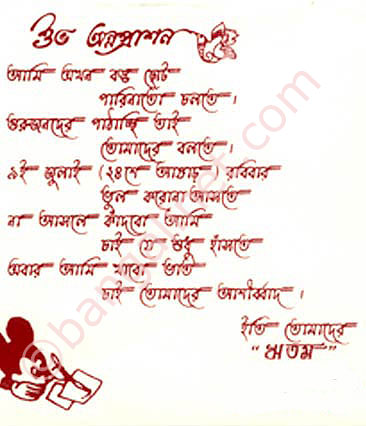 শুভ অন্নপ্রাশন
আমি এখন বড্ড ছোট
পারিনাতো চলতে।
গুরুজনদের পাঠাচ্ছি তাই
তোমাদের বলতে।
৯ই জুলাই (২৪শে আষাঢ়) রবিবার
ভুল করোনা আসতে
না আসলে কাঁদবো আমি
চাই যে শুধু হাঁসতে
এবার আমি খাবো ভাত
চাই তোমাদের আশীর্ব্বাদ।
ইতি তোমাদের
"ঋতম"